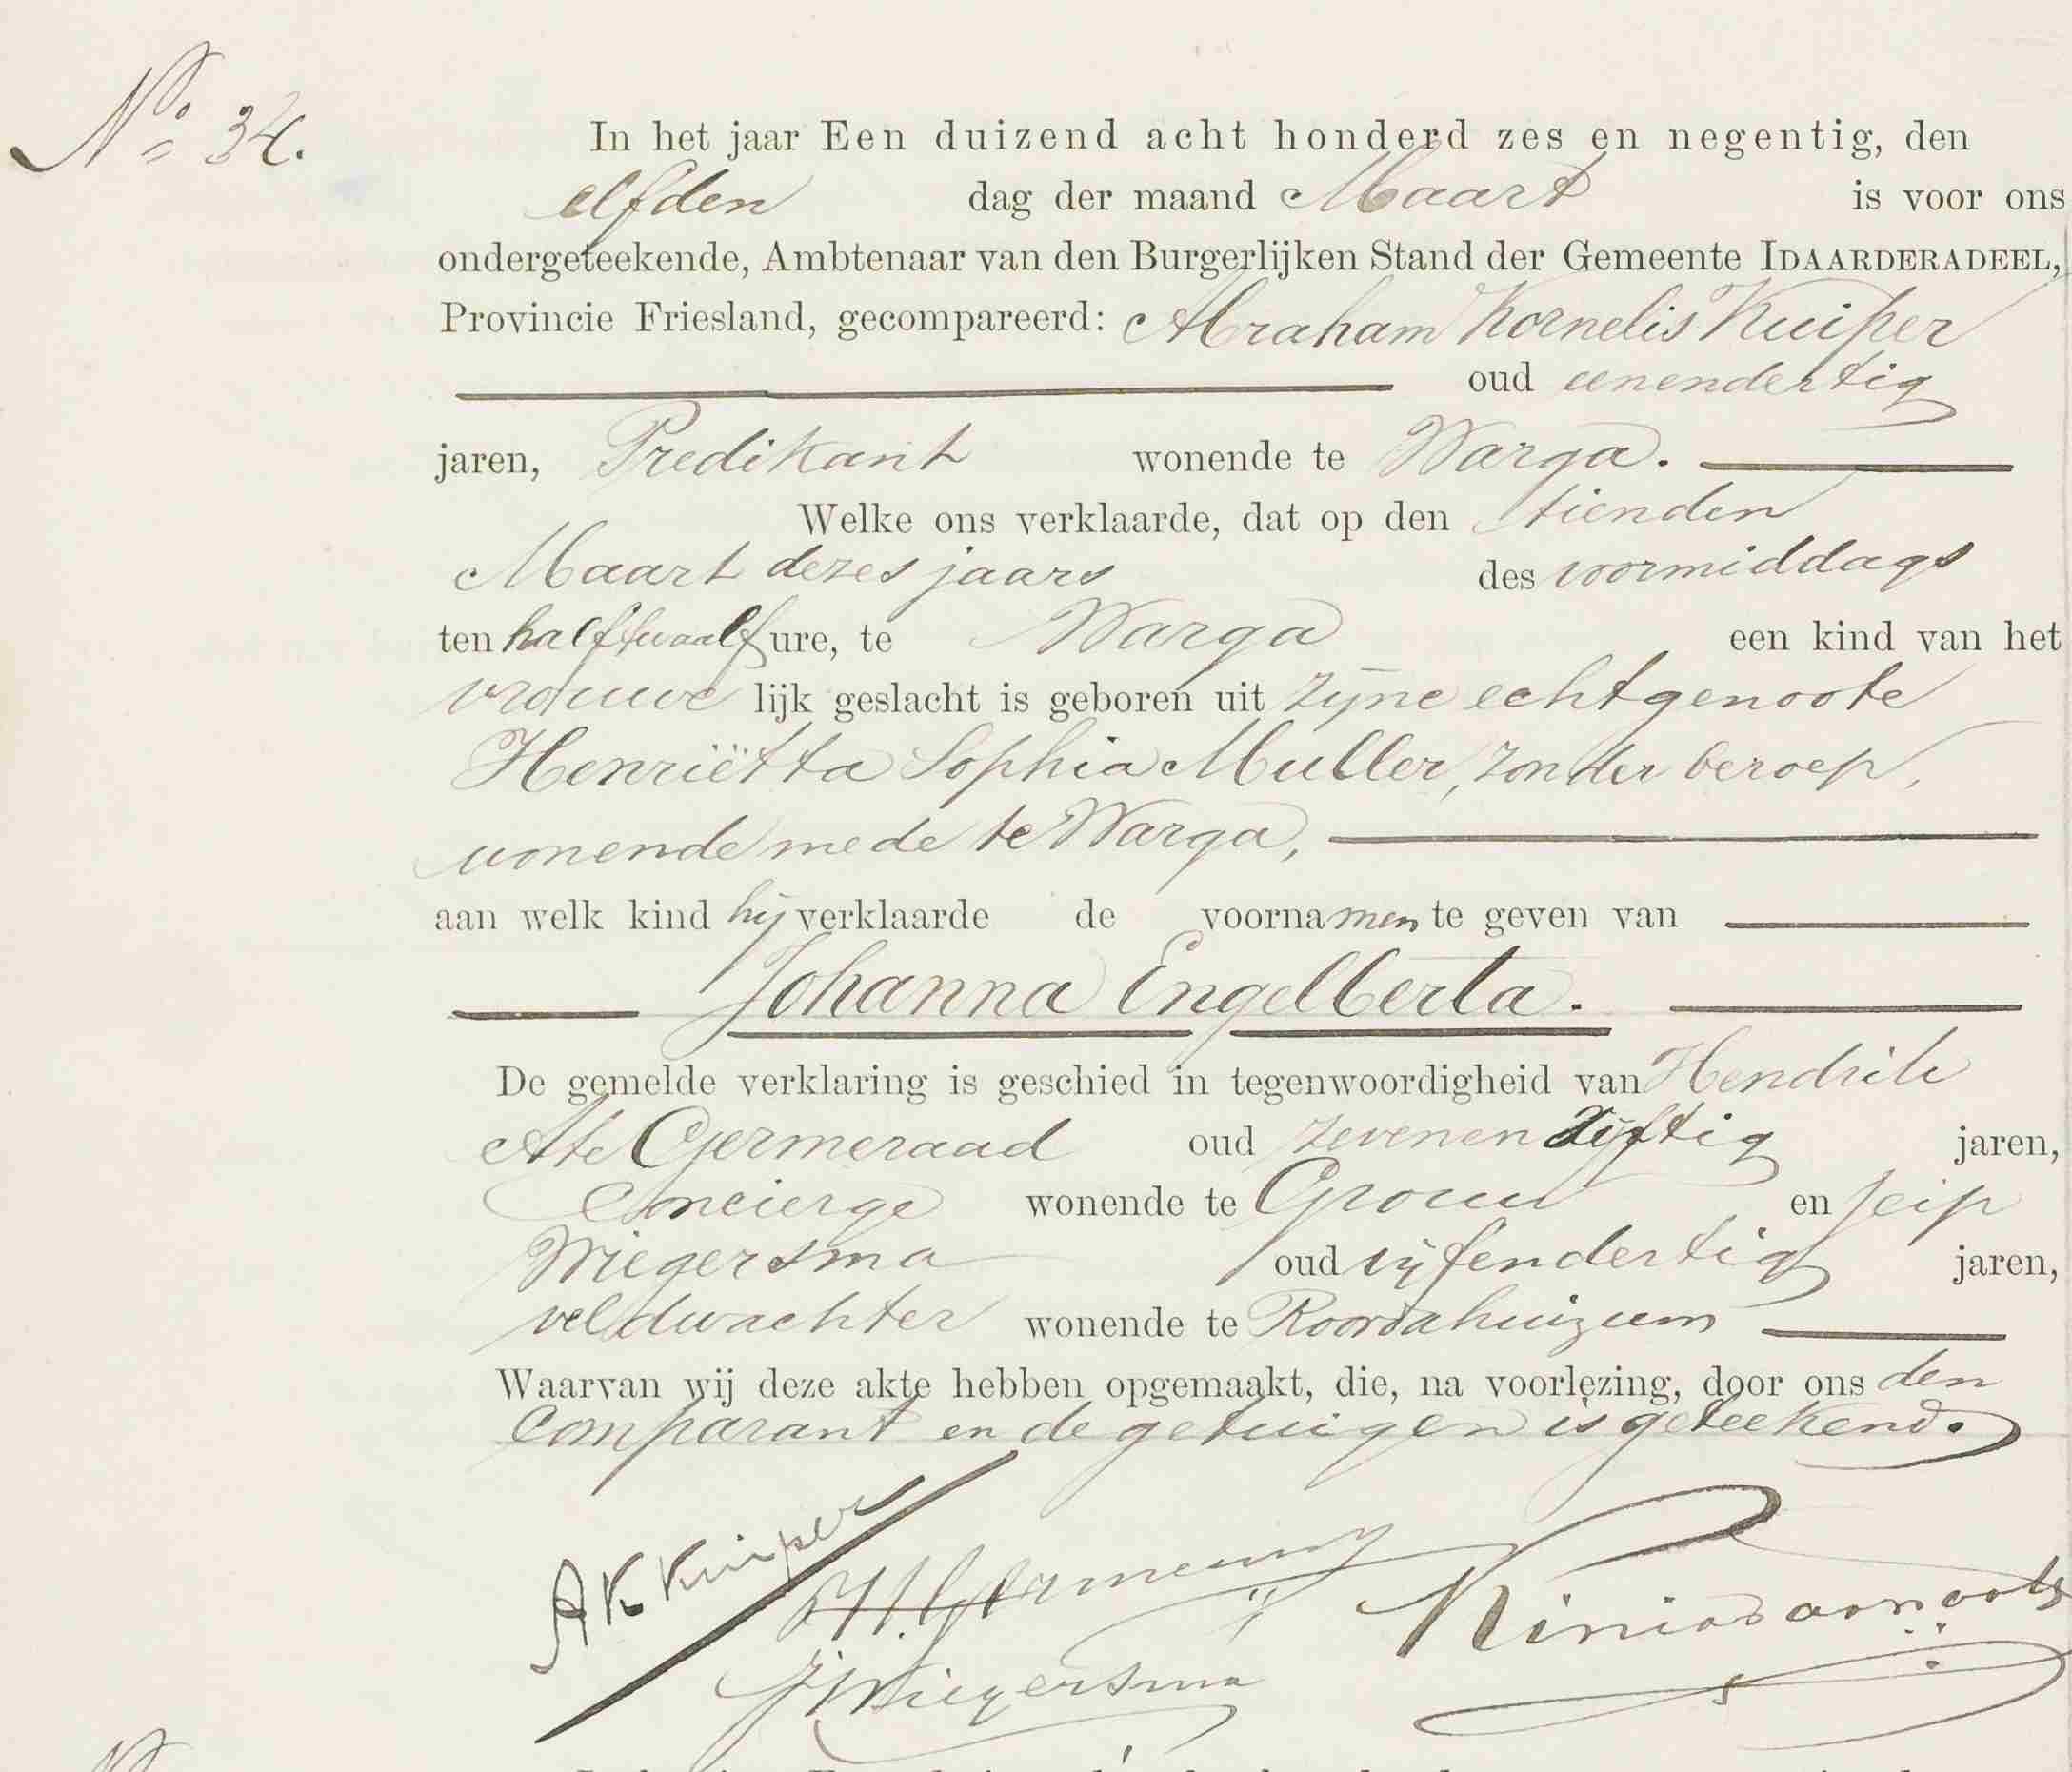 No 34.
In het jaar Een duizend acht honderd zes en negentig, den
elfden dag der maand Maart is voor ons
ondergeteekende, Ambtenaar van den Burgerlijken Stand der Gemeente IDAARDERADEEL,
Provincie Friesland, gecompareerd: Abraham Kornelis Kuiper
oud eenendertig
jaren, Predikant wonende te Warga.
Welke ons verklaarde, dat op den tienden
Maart dezes jaars des voormiddags
ten half twaalf ure, te Warga een kind van het
vrouwe lijk geslacht is geboren uit zijne echtgenoote
Henriëtta Sophia Muller, zonder beroep,
wonende mede te Warga,
aan welk kind hij verklaarde de voornamen te geven van
Johanna Engelberta.
De gemelde verklaring is geschied in tegenwoordigheid van Hendrik
Ate Germeraad oud zevenenvijftig jaren,
Concierge wonende te Grouw en Jeip
Wiegersma oud vijfendertig jaren,
veldwachter wonende te Roordahuizum
Waarvan wij deze akte hebben opgemaakt, die, na voorlezing, door ons den
Comparant en de getuigen is geteekend.
A K Kuiper
J Wiegersma